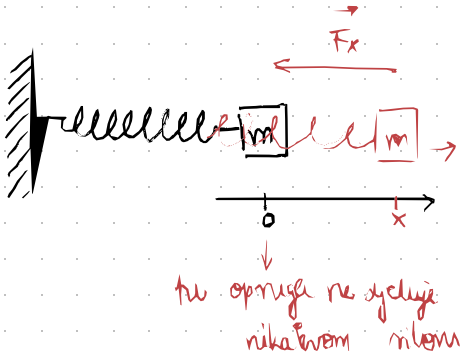 Fx
m m
0 x
tu opruga ne djeluje
nikakvom silom